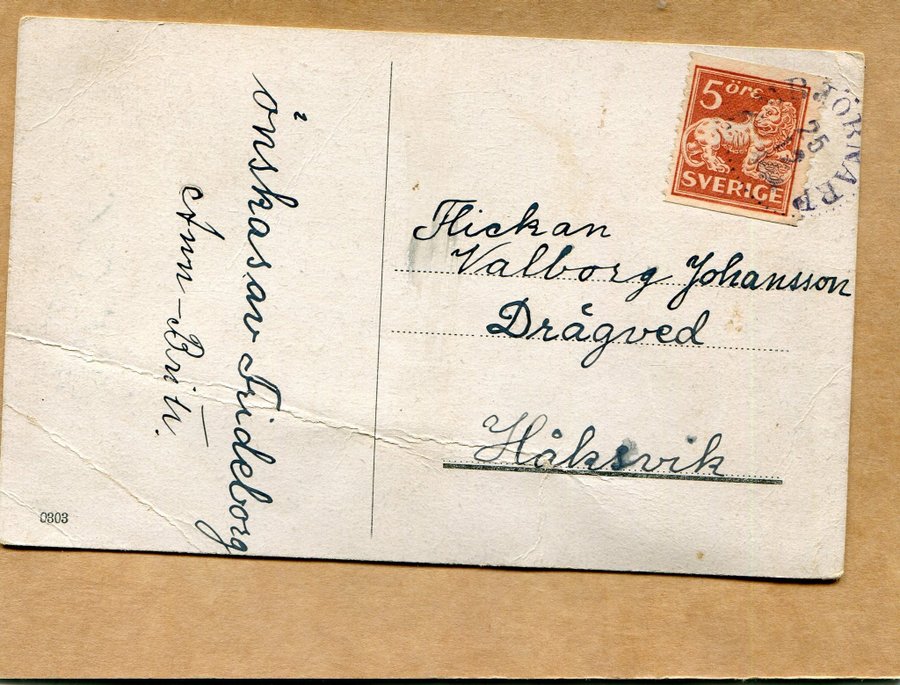 önskas av Frideborg
Ann-Britt.
5 öre
SVERIGE
25
Flickan
Valborg Johansson
Drågved
Håksvik
0303